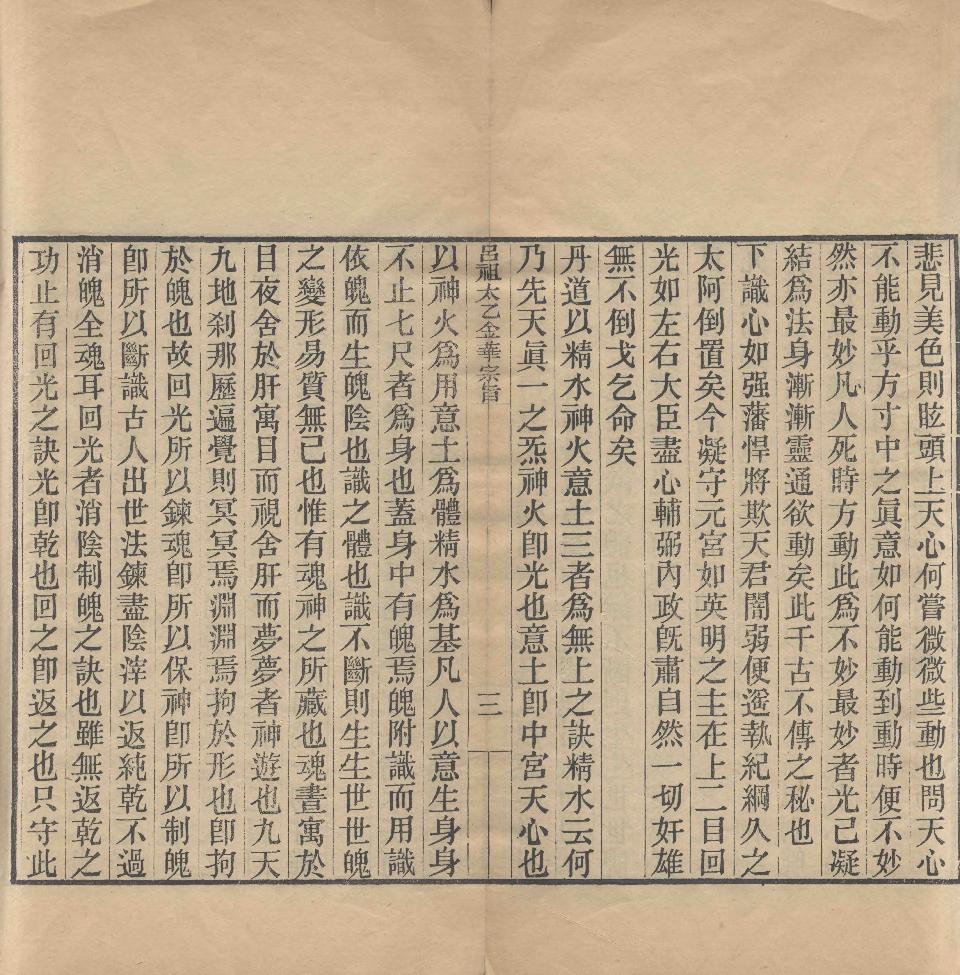 悲見美色則眩頭上天心何嘗微微些動也問天心
不能動乎方寸中之眞意如何能動到動時便不妙
然亦最妙凡人死時方動此爲不妙最妙者光已凝
結爲法身漸漸靈通欲動矣此千古不傳之秘也
下識心如强藩悍將欺天君闇弱便遙執紀綱久之
太阿倒置矣今凝守元宮如英明之主在上二目回
光如左右大臣盡心輔弼內政旣肅自然一切奸雄
無不倒戈乞命矣
丹道以精水神火意土三者爲無上之訣精水云何
乃先天眞一之炁神火卽光也意土卽中宮天心也
呂祖太乙金華宗旨
三
以神火爲用意土爲體精水爲基凡人以意生身身
不止七尺者爲身也蓋身中有魄焉魄附識而用識
依魄而生魄陰也識之體也識不斷則生生世世魄
之變形易質無已也惟有魂神之所藏也魂晝寓於
目夜舍於肝寓目而視舍肝而夢夢者神遊也九天
九地刹那歷遍覺則冥冥焉淵淵焉拘於形也卽拘
於魄也故回光所以鍊魂卽所以保神卽所以制魄
卽所以斷識古人出世法鍊盡陰滓以返純乾不過
消魄全魂耳回光者消陰制魄之訣也雖無返乾之
功止有回光之訣光卽乾也回之卽返之也只守此